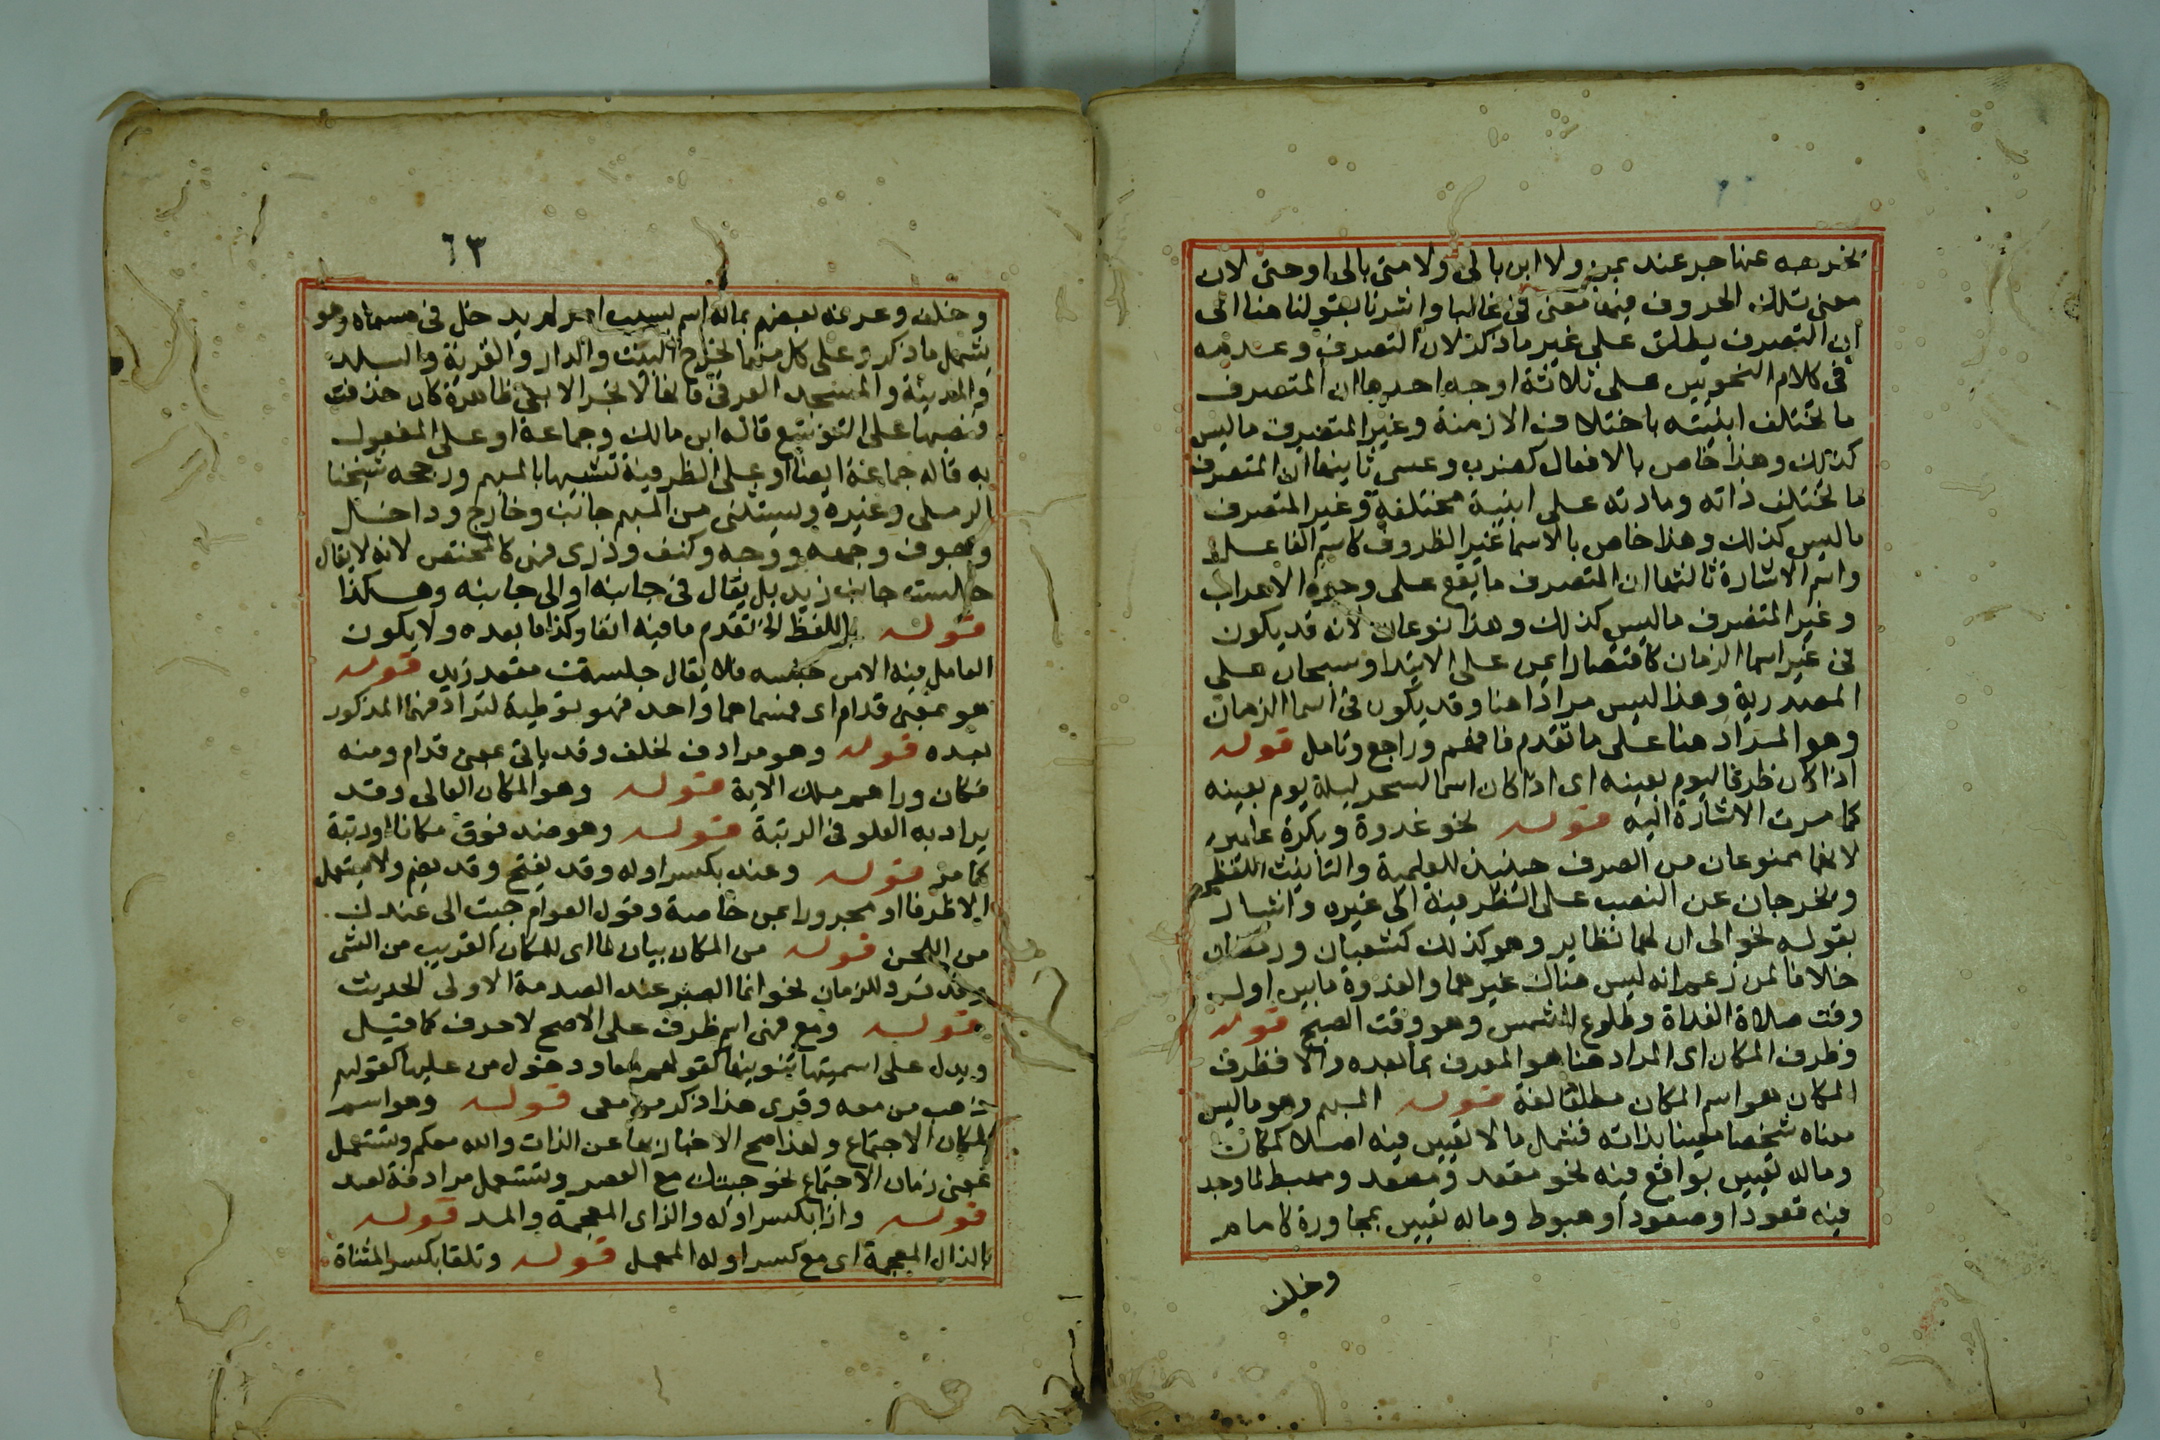 يخرجه عنها جر عند بمن ولا اين بالى ولا متى بالى او حتى لان
معنى تلك الحروف فيها معنى فى غالبا واشرنا بقولنا هنا الى
ان التصرف يطلق على غير ما ذكر لان التصرف وعدمه
فى كلام النحويين على ثلاثة اوجه احدها ان المتصرف
ما تختلف ابنيته باختلاف الازمنة وغير المتصرف ما ليس
كذلك وهذا خاص بالافعال كضرب وعسى ثانيها ان المتصرف
ما تختلف ذاته ومادته على ابنية مختلفة وغير المتصرف
ما ليس كذلك وهذا خاص بالاسما غير الظروف كاسم الفاعل
واسم الاشارة ثالثها ان المتصرف ما يقع على وجوه الاعراب
وغير المتصرف ما ليس كذلك وهذا نوعان لانه قد يكون
فى غير اسما الزمان كاقتصار ايمن على الابتدا وسبحان على
المصدرية وهذا ليس مرادا هنا وقد يكون فى اسما الزمان
وهو المراد هنا على ما تقدم فافهم وراجع وتامل قوله
اذا كان ظرفا ليوم بعينه اى اذا كان اسما لسحر ليلة يوم بعينه
كما مرت الاشارة اليه قوله نحو غدوة وبكرة علمين
لانهما ممنوعان من الصرف حينيذ للعلمية والتانيث اللفظى
ويخرجان عن النصب على الظرفية الى غيره واشار
بقوله نحو الى ان لهما نظاير وهو كذلك كشعبان ورمضان
خلافا لمن زعم انه ليس هناك غيرهما والغدوة ما بين اول
وقت صلاة الغداة وطلوع الشمس وهو وقت الصبح قوله
وظرف المكان اى المراد هنا هو المعرف بما بعده والا فظرف
المكان هو اسم المكان مطلقا لغة قوله المبهم وهو ما ليس
معناه شخصا معينا بذاته فشمل ما لا تعيين فيه اصلا كمكان
وما له تعيين بواقع فيه نحو مقعد ومصعد ومهبط لما وجد
فيه قعودا وصعودا وهبوط وما له تعيين بمجاورة كامام
وخلف
٦٣
وخلف وعرفه بعضهم بماله اسم بسبب امر لم يدخل فى مسماه وهو
يشمل ما ذكر وعلى كل منهما يخرج البيت والدار والقرية والبلد
والمدينة والمسجد العرفى فانها لا تجر الا بفى ظاهرة كان حذفت
ونصبها على التوسع قاله ابن مالك وجماعة او على المفعول
به قاله جماعة ايضا او على الظرفية تشبيها بالمبهم ورجحه شيخنا
الرملى وغيره ويستثنى من المبهم جانب وخارج وداخل
وجوف وجهه ووجه وكنف وذرى فهى كالمختص لانه لا يقال
جلست جانب زيد بل يقال فى جانبه او الى جانبه وهكذا
قوله باللفظ الخ تقدم ما فيه انفا وكذا ما بعده ولا يكون
العامل فيه الا من جنسه فلا يقال جلست مقعد زيد قوله
هو بمعنى قدام اى مسماهما واحد فهو توطية لترادفهما المذكور
بعده قوله وهو مرادف لخلف وقد ياتى بمعنى قدام ومنه
فكان وراهم ملك الاية قوله وهو المكان العالى وقد
يراد به العلو فى الرتبة قوله وهو ضد فوق مكانا او رتبة
كما مر قوله وعند بكسر اوله وقد يفتح وقد يضم ولا يستعمل
الا ظرفا او مجرورا بمن خاصة وقول العوام جيت الى عندك
من اللحن قوله من المكان بيان لما اى للمكان القريب من الشى
وقد ترد للزمان نحو انما الصبر عند الصدمة الاولى الحديث
قوله ومع فهى اسم ظرف على الاصح لا حرف كما قيل
ويدل على اسميتها تنوينها كقولهم معا ودخول من عليها كقولهم
ذهب من معه وقرى هذا ذكر من معى قوله وهو اسم
لمكان الاجتماع ولهذا صح الاخبار بها عن الذات والله معكم وتستعمل
بمعنى زمان الاجتماع نحو جيتك مع العصر وتستعمل مرادفة لعند
قوله وازا بكسر اوله والزاى المعجمة والمد قوله
بالذال المعجمة اى مع كسر اوله المهمل قوله وتلقا بكسر المثناة